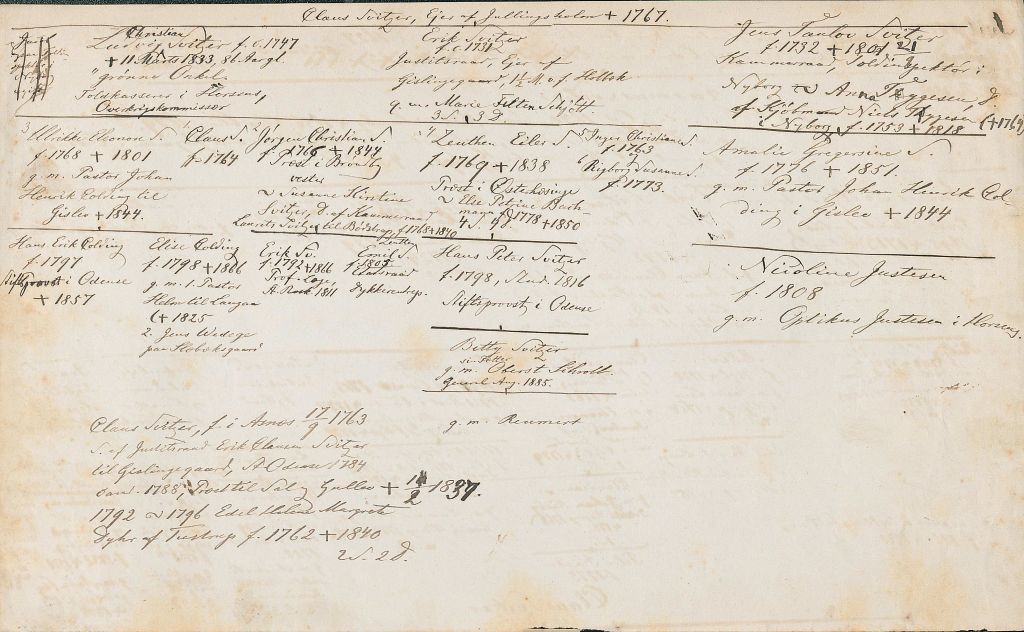 Claus Svitzer, Ejer af Jullingsholm + 1767.
Christian
Ludvig Svitzer f. c. 1747
+ 11 Marts 1833, 86 Aar gl.
"grønne Onkel"
Toldkasserer i Horsens,
Overkrigskommissær
Erik Svitzer
f. c. 1731
Justitsraad, Ejer af
Gislingegaard, 1½ M. v. f. Holbæk
g. m. Marie Felten Schjøtt.
3 S. 3 D.
Jens Taulov Svitzer
f. 1732 + 1801
Kammerraad, Toldinspektør i
Nyborg ~ Anna Tryggesen, D.
af Kjøbmand Niels Tryggesen (+ 1769)
i Nyborg, f. 1753 + 1818
3 Ulrikke Eleonore S.
f. 1768 + 1801
g. m. Pastor Johan
Henrik Colding til
Gislev + 1844.
1 Claus S.
f. 1764
2 Jørgen Christian S.
f. 1766 + 1844
Prost i Brønby
vester
~ Susanne Kirstine
Svitzer, D. af Kammerraad
Laurits Svitzer til Böistrup, f. 1768 + 1840
4 Zeuthen Eiler S.
f. 1769 + 1838
Prost i Østerhæsinge
~ Else Petrine Bech-
mann f. 1778 + 1850
4 S. 9 D.
5 Inger Christiane S.
f. 1763
6 Rigborg Susanne S.
f. 1773.
Amalie Gregersine S.
f. 1776 + 1851.
g. m. Pastor Johan Henrik Col
ding i Gislev + 1844
Hans Erik Colding
f. 1797
Stiftsprovst i Odense
+ 1857
Elise Colding
f. 1798 + 1866
g. m. 1. Pastor
Helm til Langaa
(+ 1825
2. Jens Wedege
paa Holbeksgaard
Erik Sv.
f. 1793 + 1866
Prof. Læge,
A. Rosk. 1811
Zeuthen
Emil S.
f. 1805
Etatsraad
Dykkerentrep.
Hans Peter Svitzer
f. 1798, Stud. 1816
Stiftsprovst i Odense
Nicoline Justesen
f. 1808
g. m. Optikus Justesen i Horsens.
Betty Svitzer
g. m. Oberst Schroll.
General Aug. 1885.
g. m. Reumert
Claus Svitzer, f. i Assens 17/9 1763
S. af Justitsraad Erik Clausen Svitzer
til Gislingegaard, St. Odense 1784
cand. 1788, Prost til Sal og Gullev + 14/2 1837.
1792 ~ 1796 Edel Helene Margrete
Dyhr af Tustrup f. 1762 + 1840
2 S. 2 D.